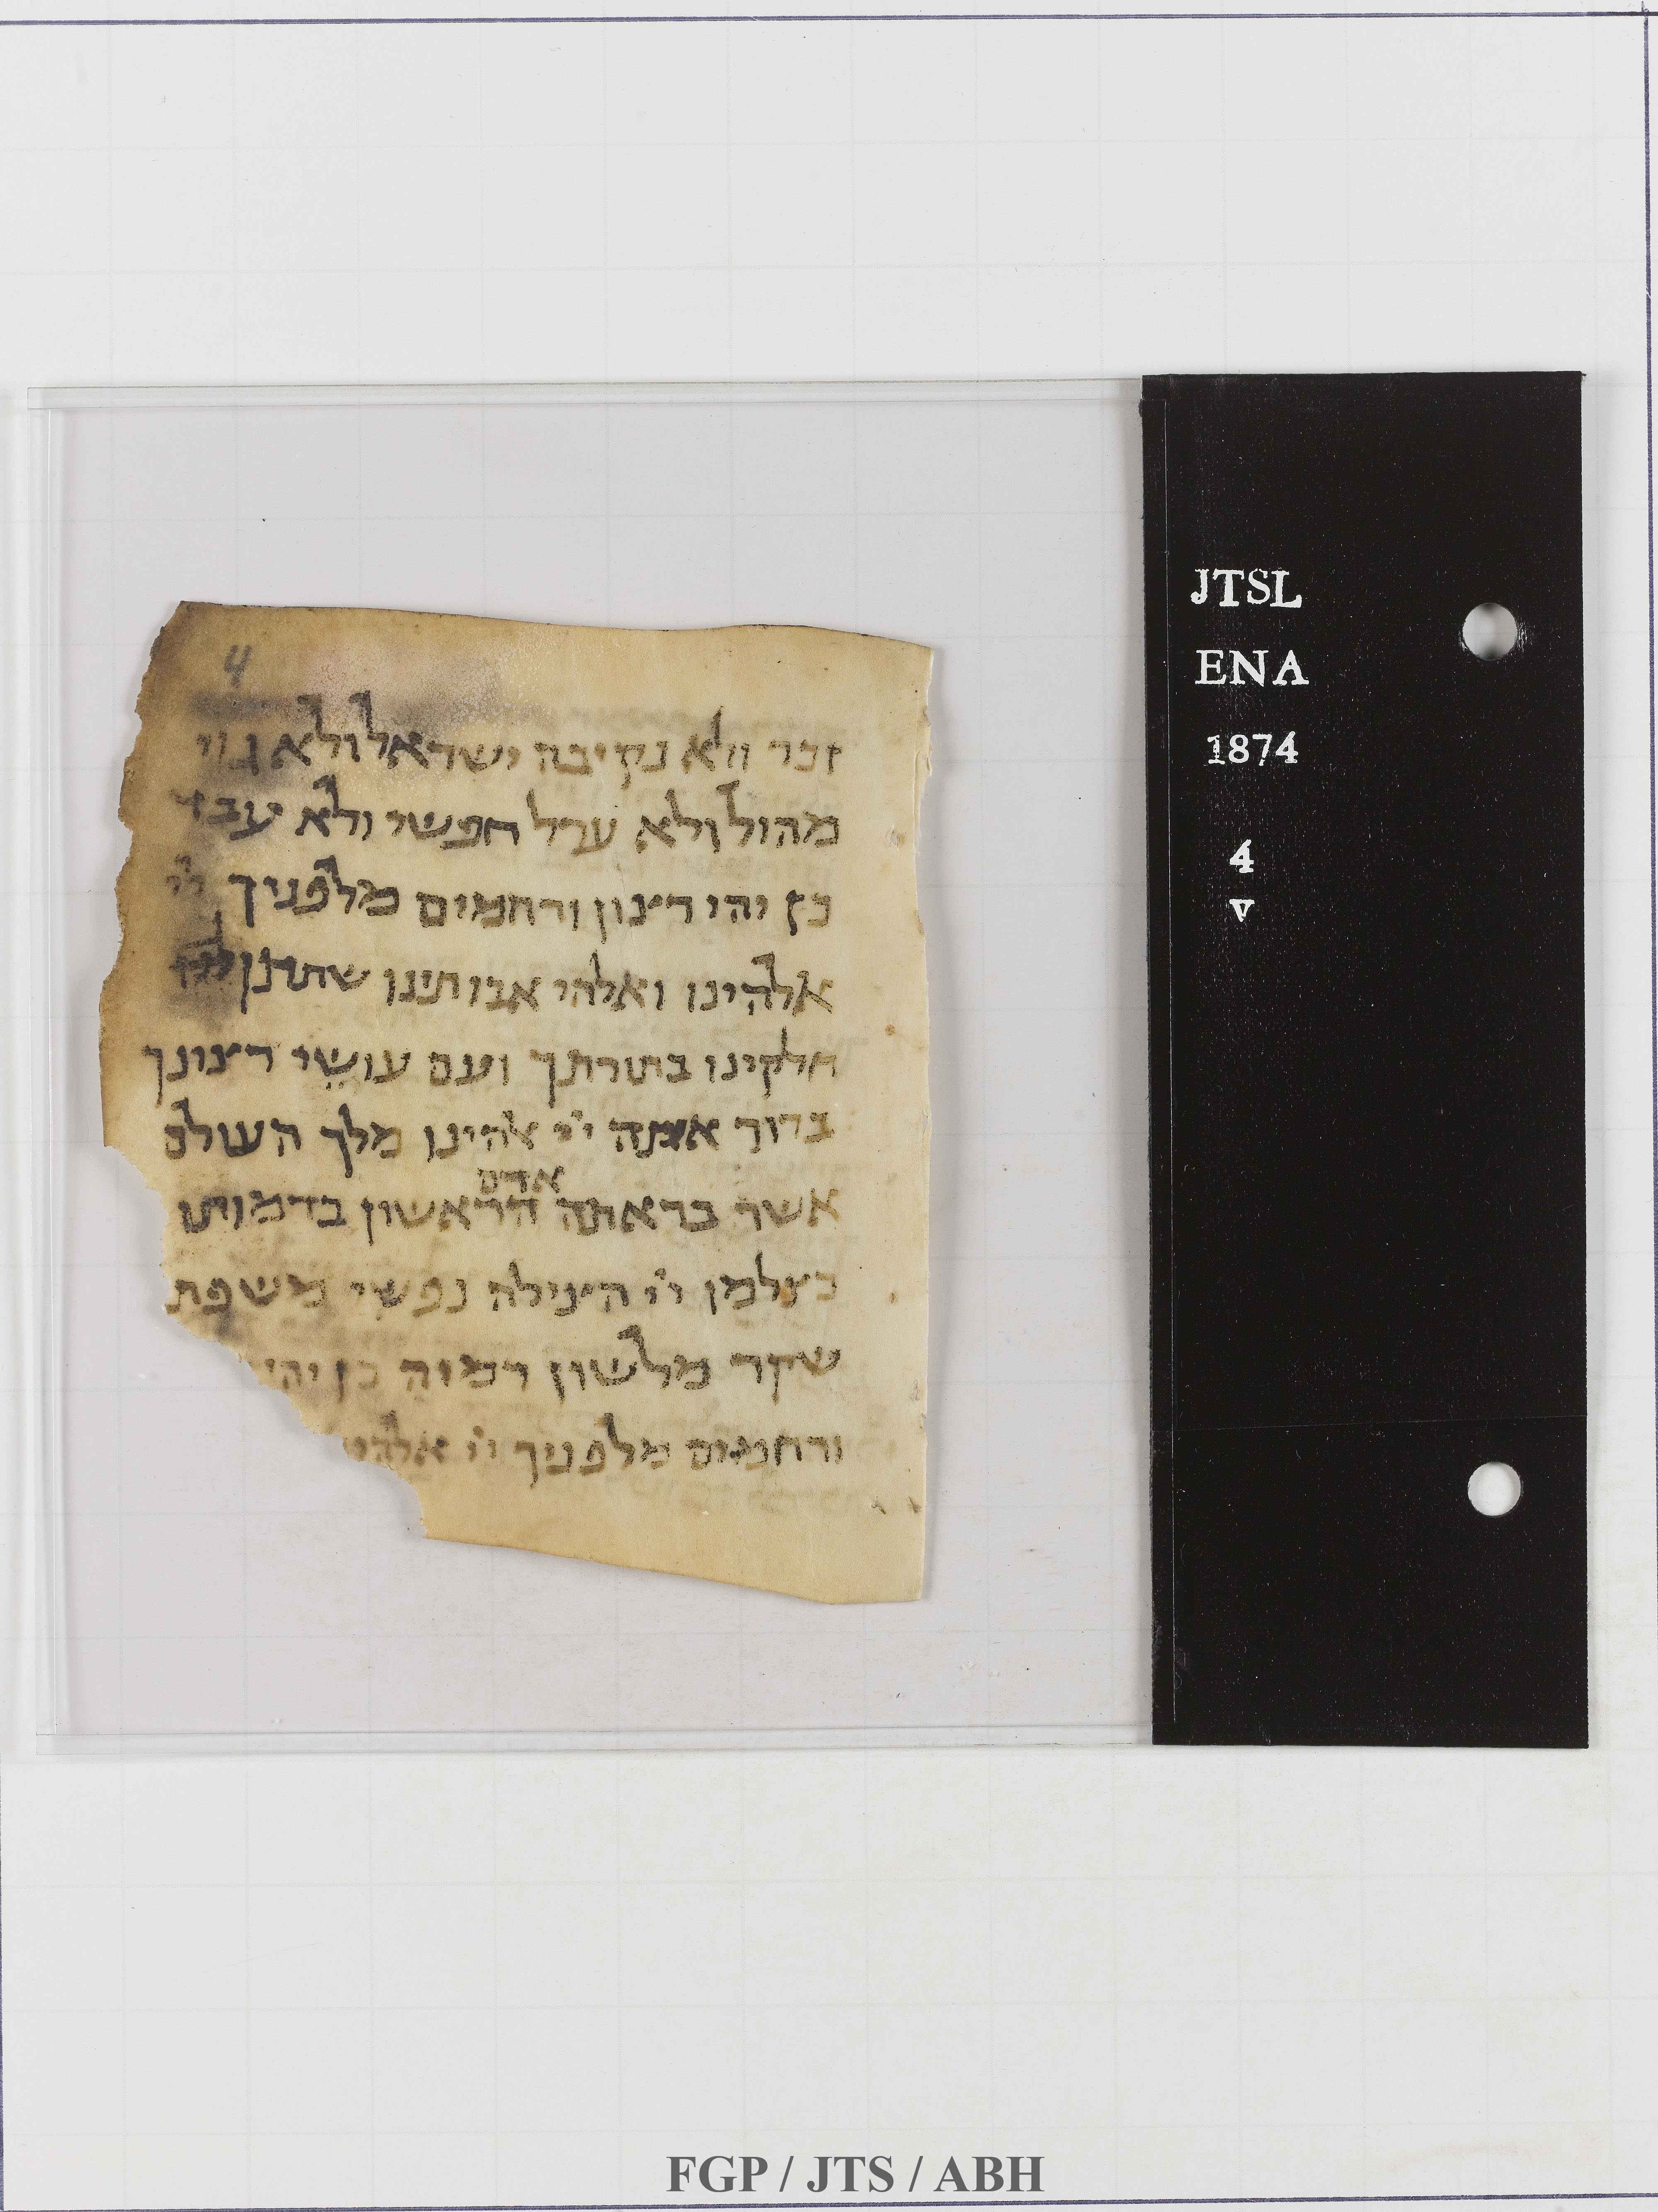 4
זכר ולא נקיבה ישראל ולא גוי
מהול ולא ערל חפשי ולא עבד
כן יהי רצון ורחמים מלפניך ייי
אלהינו ואלהי אבותינו שתתן
חלקינו בתורתך ועם עושי רצונך
ברוך אתה ייי אלהינו מלך העולם
אדם
אשר בראתה הראשון בדמותו
כצלמו ייי הצילה נפשי משפת
שקר מלשון רמיה כן יהי
ורחמים מלפניך ייי
JTSL
ENA
1874
4
v
FGP / JTS / ABH